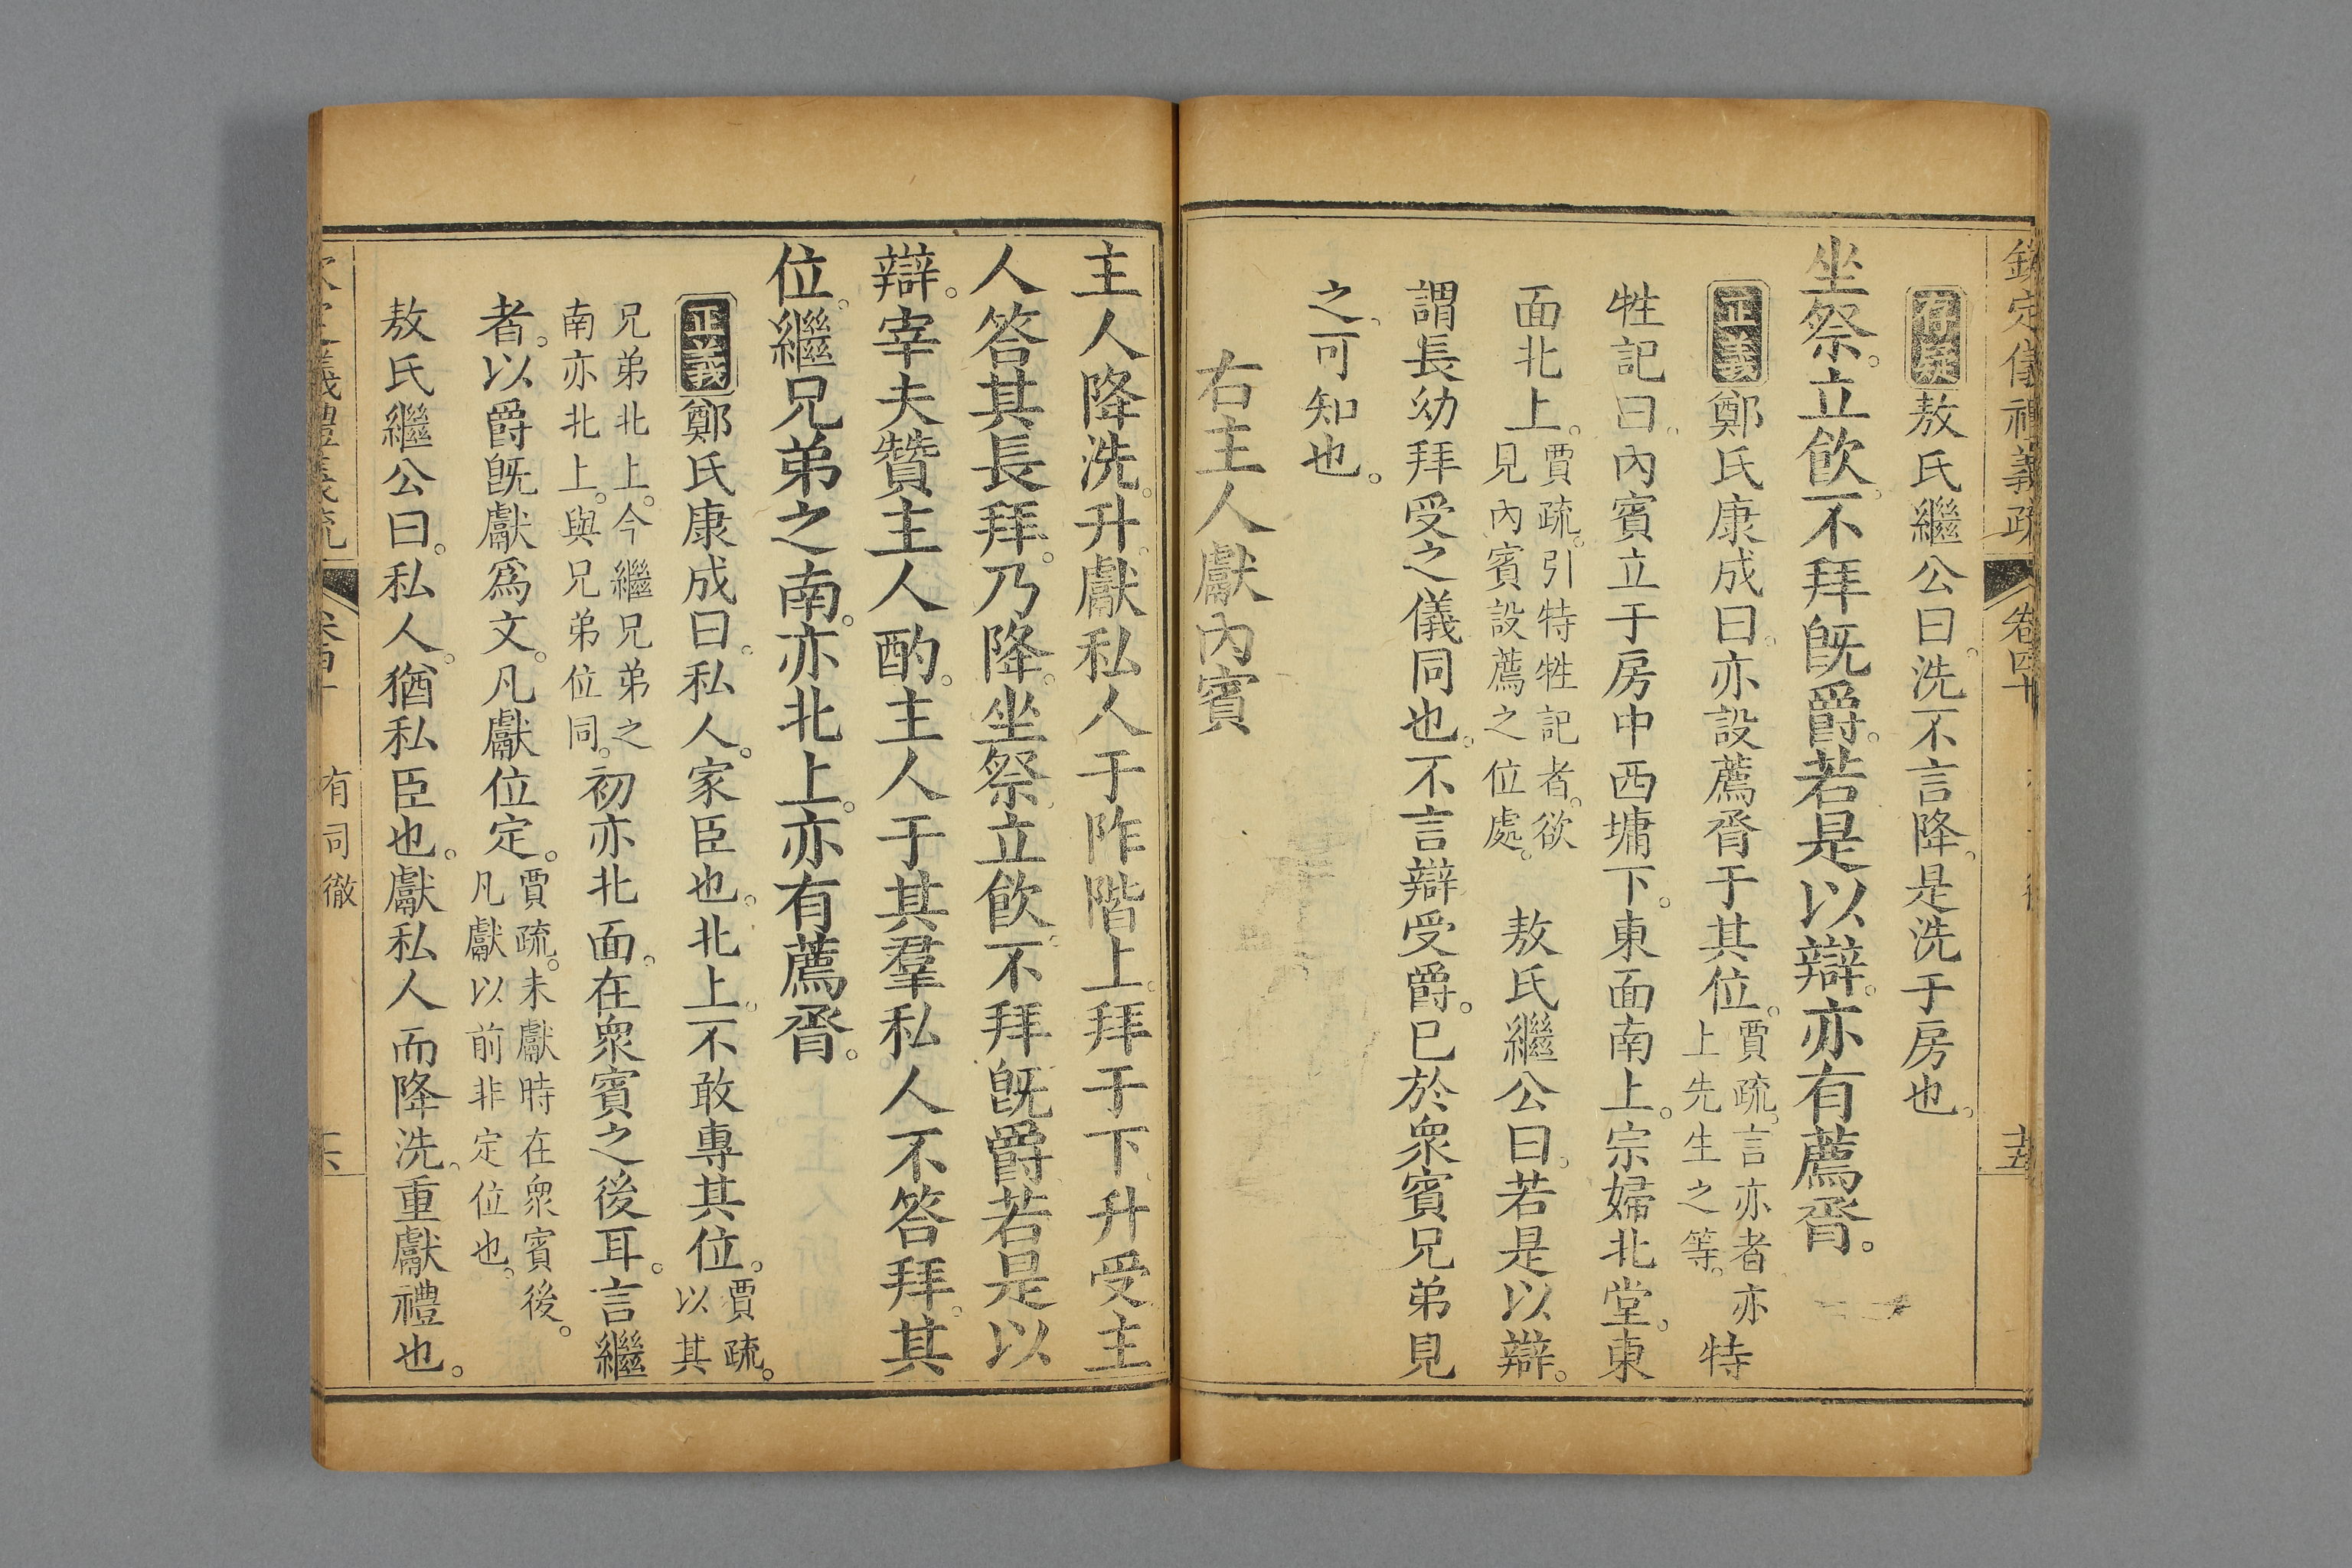 欽定儀禮義疏 卷四十 十五
存疑敖氏繼公曰洗不言降是洗于房也
坐祭立飲不拜旣爵若是以辯亦有薦脀
正義鄭氏康成曰亦設薦脀于其位賈疏言亦者亦上先生之等特
牲記曰內賓立于房中西墉下東面南上宗婦北堂東
面北上賈疏引特牲記者欲見內賓設薦之位處 敖氏繼公曰若是以辯
謂長幼拜受之儀同也不言辯受爵已於衆賓兄弟見
之可知也
右主人獻內賓
主人降洗升獻私人于阼階上拜于下升受主
人答其長拜乃降坐祭立飲不拜旣爵若是以
辯宰夫贊主人酌主人于其羣私人不答拜其
位繼兄弟之南亦北上亦有薦脀
正義鄭氏康成曰私人家臣也北上不敢專其位賈疏以其
兄弟北上今繼兄弟之南亦北上與兄弟位同初亦北面在衆賓之後耳言繼
者以爵旣獻爲文凡獻位定賈疏未獻時在衆賓後凡獻以前非定位也
敖氏繼公曰私人猶私臣也獻私人而降洗重獻禮也
有司徹